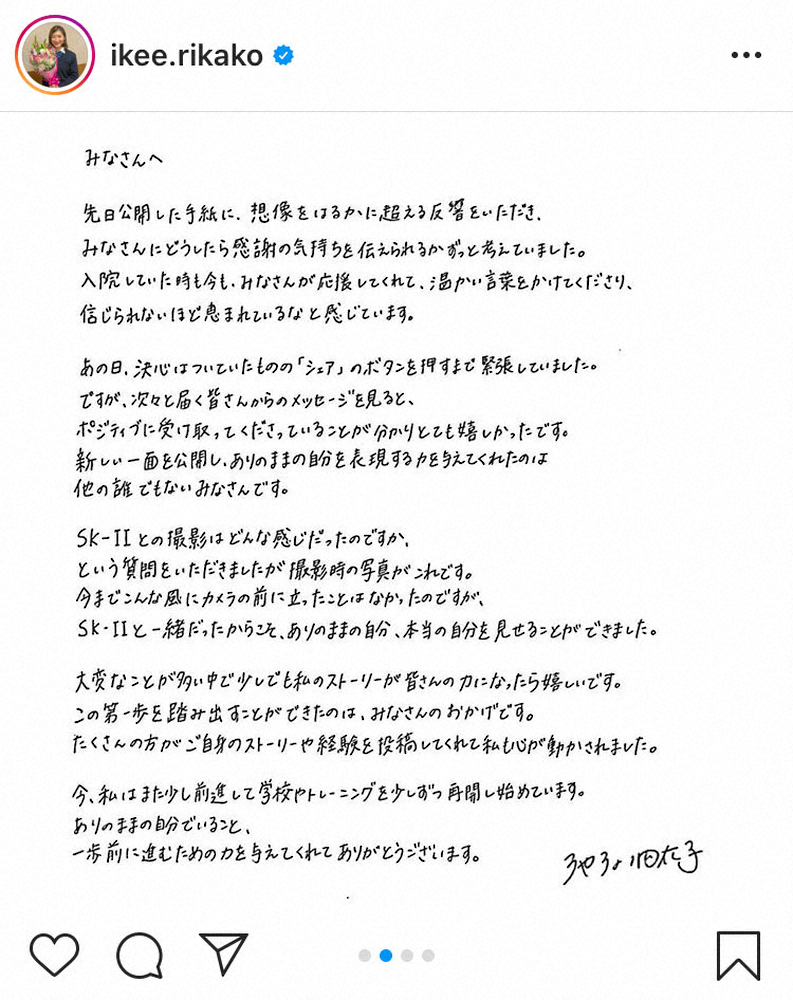 ikee.rikako
みなさんへ
先日公開した手紙に、想像をはるかに超える反響をいただき、
みなさんにどうしたら感謝の気持ちを伝えられるかずっと考えていました。
入院していた時も今も、みなさんが応援してくれて、温かい言葉をかけてくださり、
信じられないほど恵まれているなと感じています。
あの日、決心はついていたものの「シェア」のボタンを押すまで緊張していました。
ですが、次々と届く皆さんからのメッセージを見ると、
ポジティブに受け取ってくださっていることが分かりとても嬉しかったです。
新しい一面を公開し、ありのままの自分を表現する力を与えてくれたのは
他の誰でもないみなさんです。
SK-IIとの撮影はどんな感じだったのですか、
という質問をいただきましたが撮影時の写真がこれです。
今までこんな風にカメラの前に立ったことはなかったのですが、
SK-IIと一緒だったからこそ、ありのままの自分、本当の自分を見せることができました。
大変なことが多い中で少しでも私のストーリーが皆さんの力になったら嬉しいです。
この第一歩を踏み出すことができたのは、みなさんのおかげです。
たくさんの方がご自身のストーリーや経験を投稿してくれて私も心が動かされました。
今、私はまた少し前進して学校やトレーニングを少しずつ再開し始めています。
ありのままの自分でいること、
一歩前に進むための力を与えてくれてありがとうございます。
池江璃花子